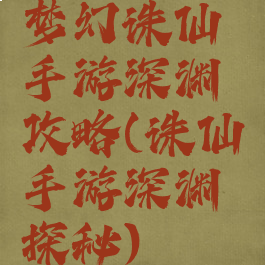 梦幻诛仙
手游深渊
攻略(诛仙
手游深渊
探秘)